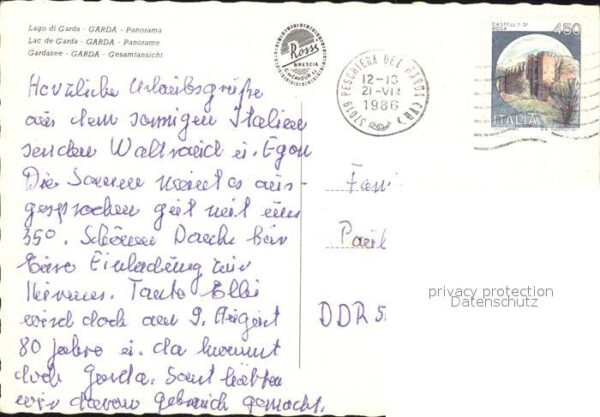 Lago di Garda - GARDA - Panorama
Lac de Garda - GARDA - Panorame
Gardasee - GARDA - Gesamtansicht
Rossi
BRESCIA
37019 PESCHIERA DEL GARDA (VR)
12-13
21-VII
1986
CASTELLO DI
ROSA
450
ITALIA
Herzliche Urlaubsgrüße
aus dem sonnigen Italien
senden Waltraud u. Egon
Die Sonne meint es aus-
gesprochen gut mit uns
35°. Schönen Dank für
Eure Einladung zur
Tante Elli
wird doch am 9. August
80 Jahre u. da kommt
doch Gerda. Sonst hätten
wir davon gebrauch gemacht.
Fam
DDR 5
privacy protection
Datenschutz